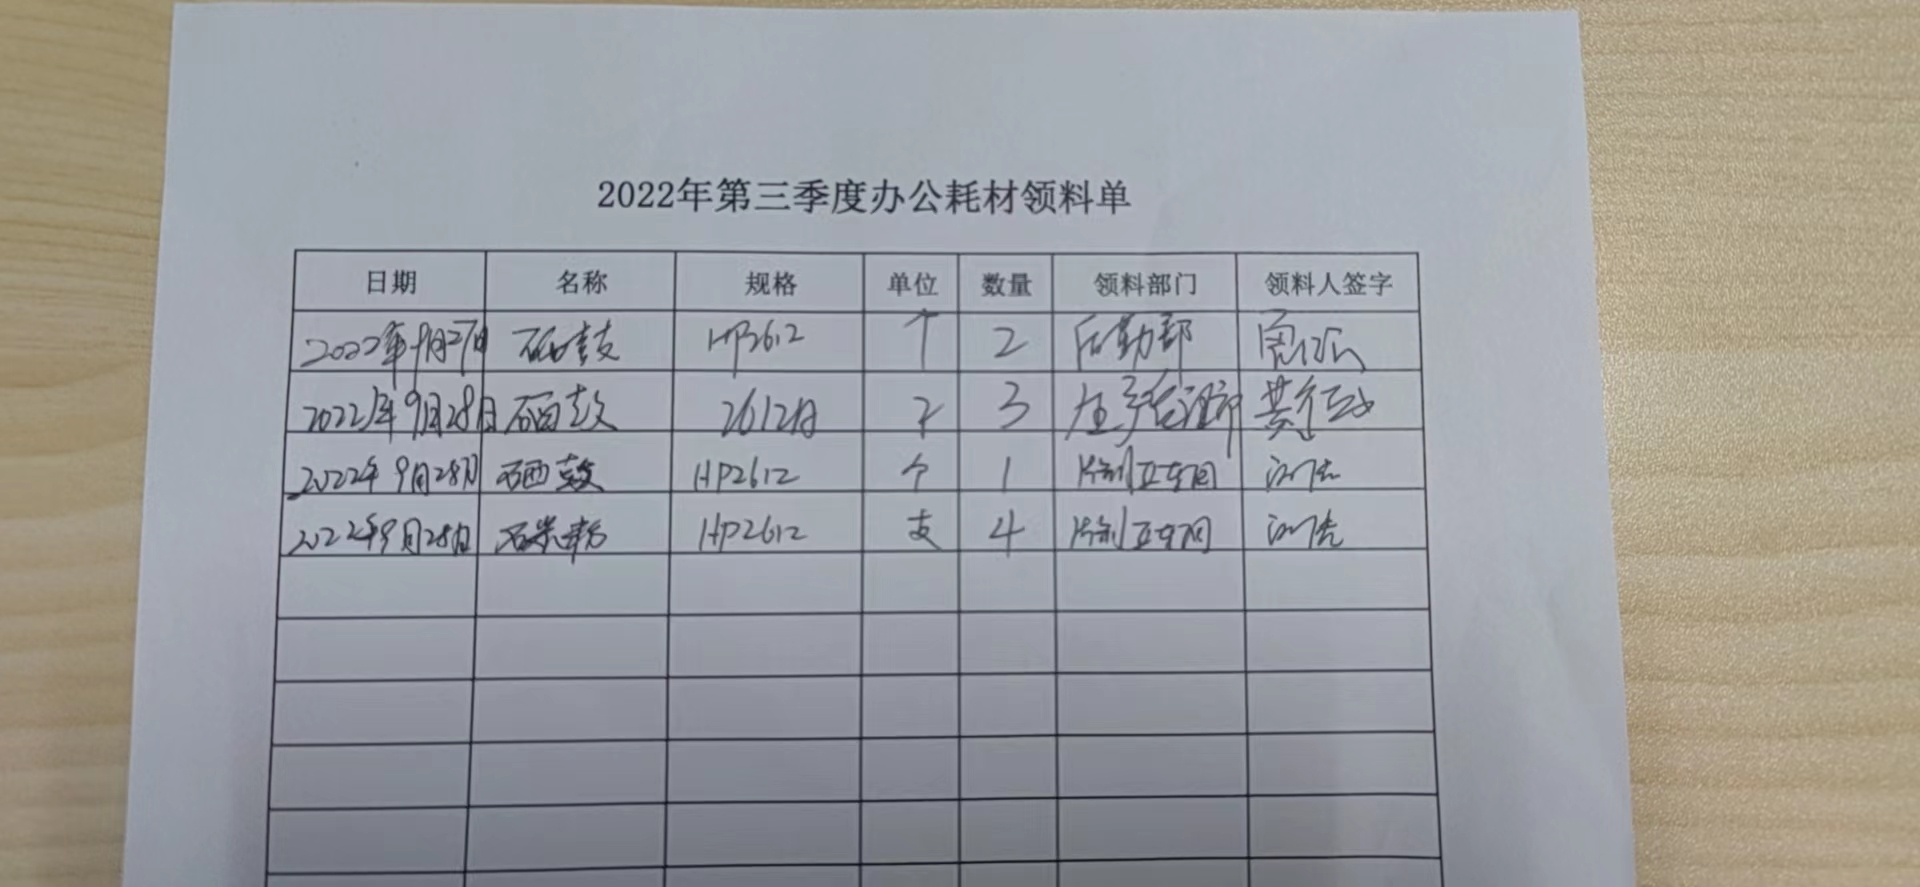 2022年第三季度办公耗材领料单
日期 名称 规格 单位 数量 领料部门 领料人签字
2022年9月27日 硒鼓 HP2612 个 2 后勤部
2022年9月28日 硒鼓 2612A 个 3 生产管理部
2022年9月28日 硒鼓 HP2612 个 1 片剂卫车间
2022年9月28日 碳粉 HP2612 支 4 片剂卫车间